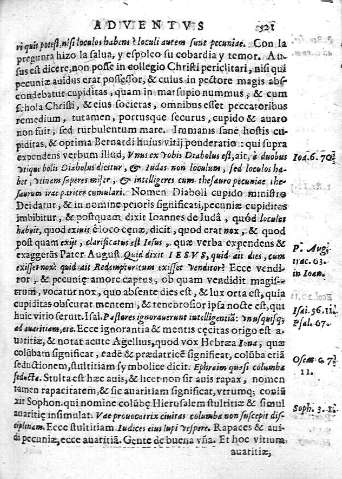 ADVENTVS 321
ri quis potest, nisi loculos habens? loculi autem sunt pecuniæ. Con la
pregunta hizo la salua, y espolco su cobardia y temor. Au-
sus est dicere, non posse in collegio Christi periclitari, nisi qui
pecuniæ auidus erat possessor, & cuius in pectore magis abs-
condebatur cupiditas, quam in marsupio nummus, & cum
schola Christi, & eius societas, omnibus esset peccatoribus
remedium, tutamen, portusque securus, cupido & auaro
non fuit, sed turbulentum mare. Immanis sane hostis cu-
piditas, & optima Bernardi huius vitij ponderatio: qui supra
expendens verbum illud, Vnus ex vobis Diabolus est, ait, à duobus
vtique bolis Diabolus dicitur, & Iudas non loculum, sed loculos ha-
buit, vt in en & intelligeres cum thesauro pecuniæ the-
saurum iræ pariter cumulari. Nomen Diaboli cupido ministro
Dei datur, & in nomine peioris significati, pecuniæ cupiditas
imbibitur, & postquam dixit Ioannes de Iudâ, quòd loculos
habuit, quod exiuit è loco cenæ, dicit, quod erat nox, & quod
postquam exijt, clarificatus est Iesus, quæ verba expendens &
exaggerãs Pater August. Quid dixit IESVS, quid ait dies, cum
exisset nox? quid ait Redemptor cum exisset venditor? Ecce vendi-
tor, & pecuniæ amore capax, ob quam vendidit magis-
trum, vocatur nox, quo absente dies est, & lux orta est, quia
cupiditas obscurat mentem, & tenebrosior ipsa nocte est, qui
huic vitio seruit. Isai. Pastores ignorauerunt intelligentiã: vnusquisq;
ad auaritiam, &c. Ecce ignorantia & mentis cęcitas origo est a-
uaritiæ, & notat acute Agellius, quod vox Hebræa Iona, quæ
colũbam significat, eadẽ & prædatricẽ significat, colũba etiã
seductionem, stultitiam symbolice dicit. Ephraim quasi columba
seducta. Stulta est hæc auis, & licet non sit auis rapax, nomen
tamen rapacitatem, & sic auaritiam significat, vtrumq; coniũ
xit Sophon. qui nomine colũbę Hierusalem stultitiæ & simul
auaritię insimulat. Væ prouocatrix ciuitas columba non suscepit dis-
ciplinam. Ecce stultitiam Iudices eius lupi vespere. Rapaces & aui-
di pecuniæ, ecce auaritiã. Gente de buena vña. Et hoc vitium
auaritiæ,
Ioã. 6. 70.
P. Aug.
trac. 63.
in Ioan.
Isai. 56. 11.
Psal. 67.
Osee
11.
Soph. 3. 1.